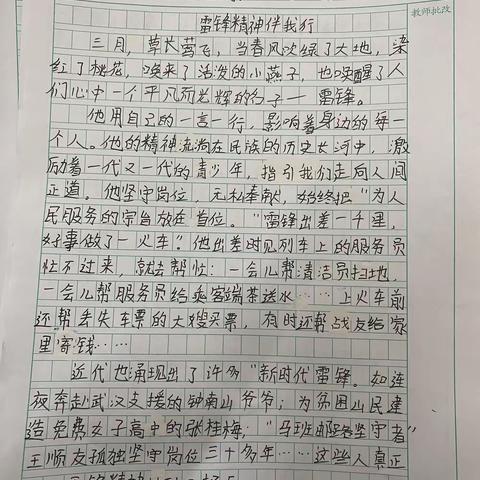 教师批改
雷锋精神伴我行
三月，草长莺飞，当春风吹绿了大地，染
红了桃花，唤来了活泼的小燕子，也唤醒了人
们心中一个平凡而光辉的名字——雷锋。
他用自己的一言一行，影响着身边的每一
个人。他的精神流淌在民族的历史长河中，激
励着一代又一代的青少年，指引我们走向人间
正道。他坚守岗位，无私奉献，始终把“为人
民服务的宗旨放在首位。“雷锋出差一千里，
好事做了一火车”他出差时见列车上的服务员
忙不过来，就去帮忙：一会儿帮清洁员扫地，
一会儿帮服务员给乘客端茶送水……上火车前
还帮丢失车票的大嫂买票，有时还帮战友给家
里寄钱……
近代也涌现出了许多“新时代雷锋。如连
夜奔赴武汉支援的钟南山爷爷；为贫困山民建
造免费女子高中的张桂梅；“马班邮路坚守者”
王顺友孤独坚守岗位三十多年……这些人真正